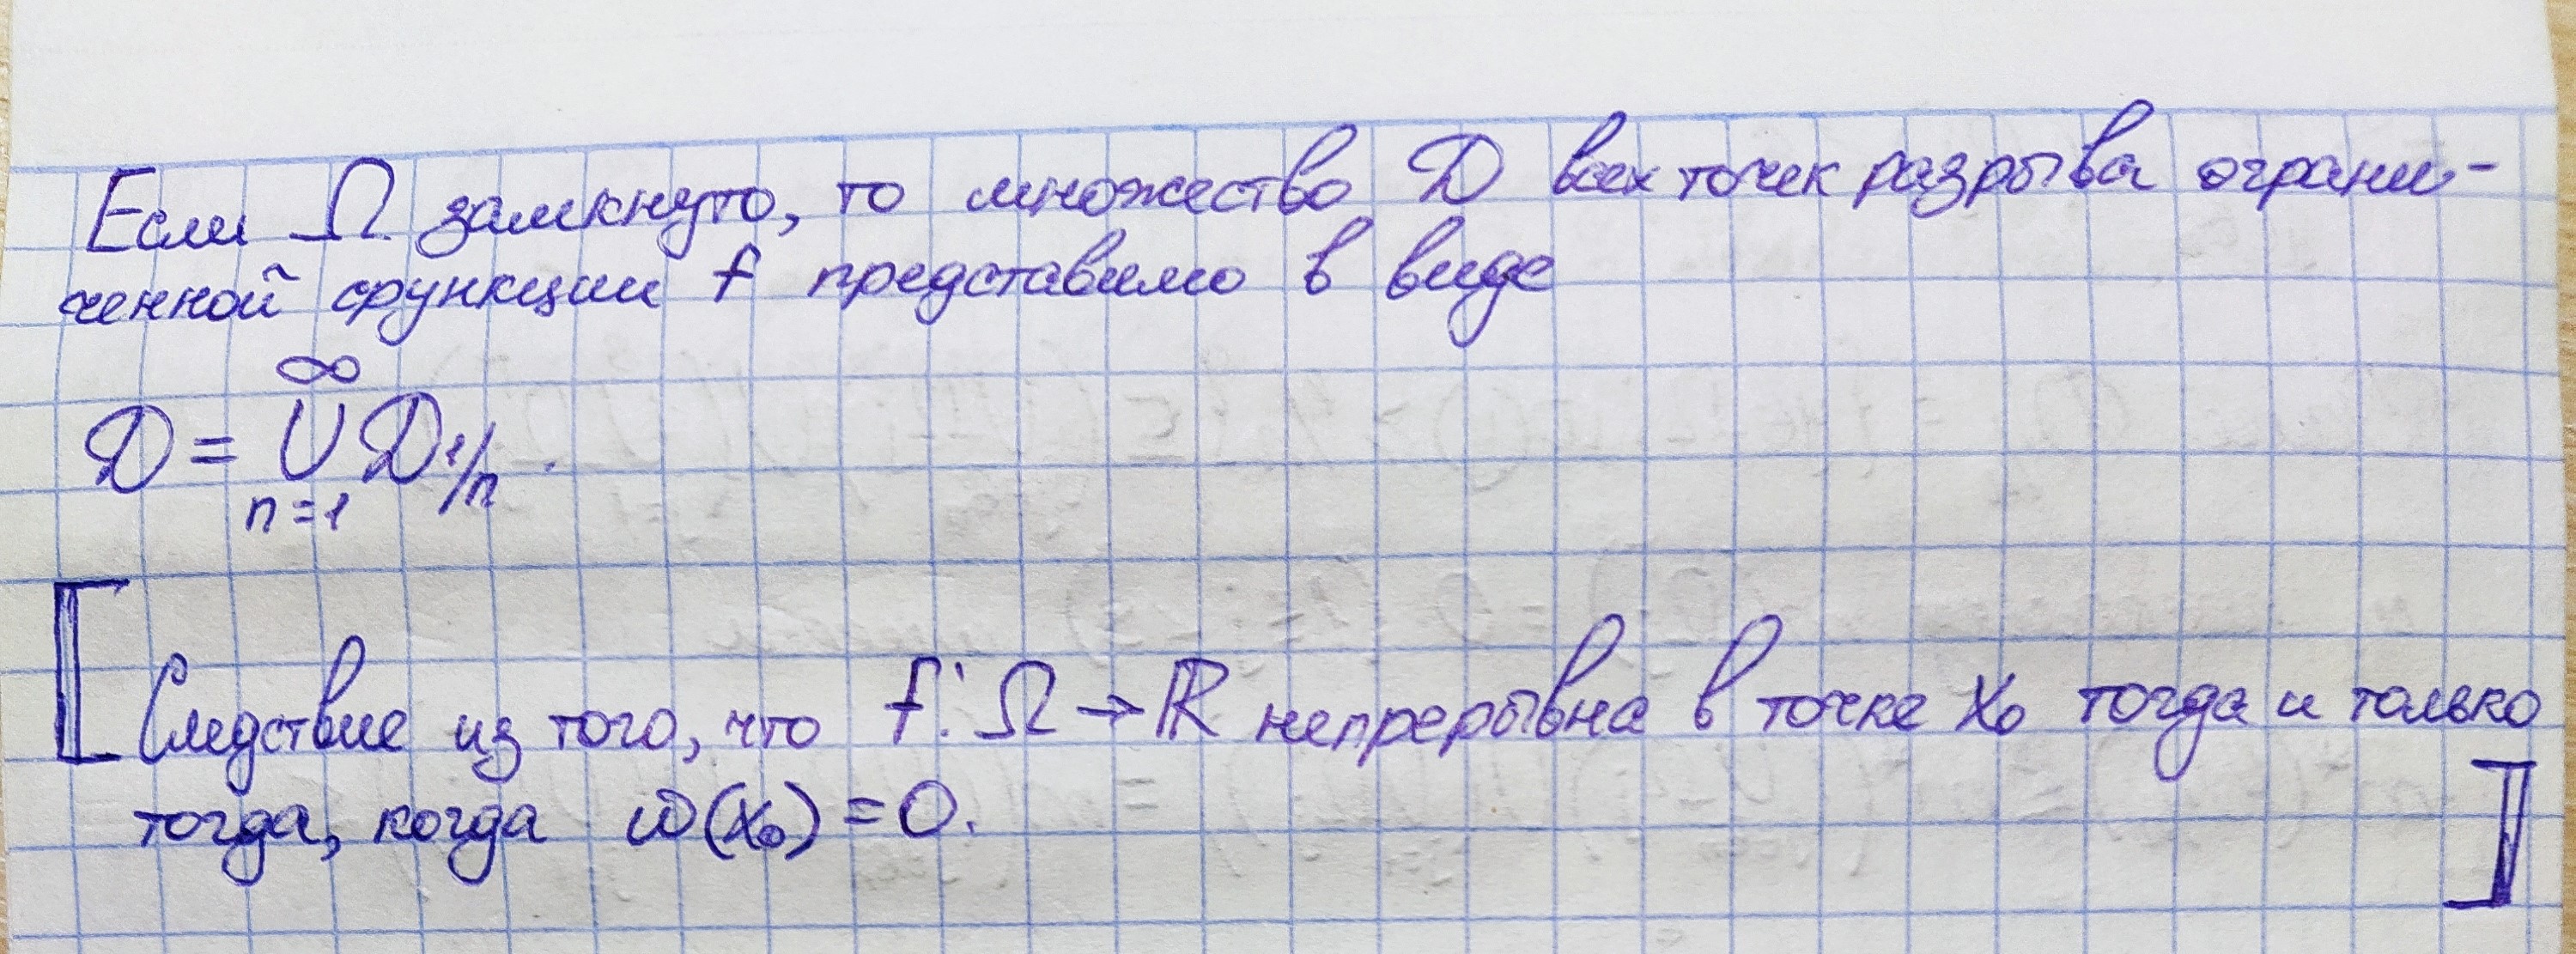 Если Ω замкнуто, то множество D всех точек разрыва ограни-
ченной функции f представимо в виде
D = ∞⋃n=1 D1/n.
Следствие из того, что f: Ω → ℝ непрерывна в точке x₀ тогда и только
тогда, когда ω(x₀) = 0.